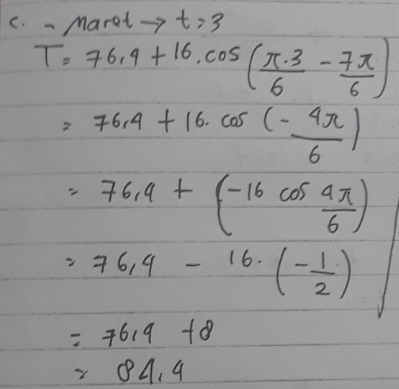 c. - Maret → t = 3
T = 76,4 + 16. cos (π.3/6 - 7π/6)
= 76,4 + 16. cos (- 4π/6)
= 76,4 + (-16 cos 4π/6)
= 76,4 - 16. (-1/2)
= 76,4 + 8
= 84,4